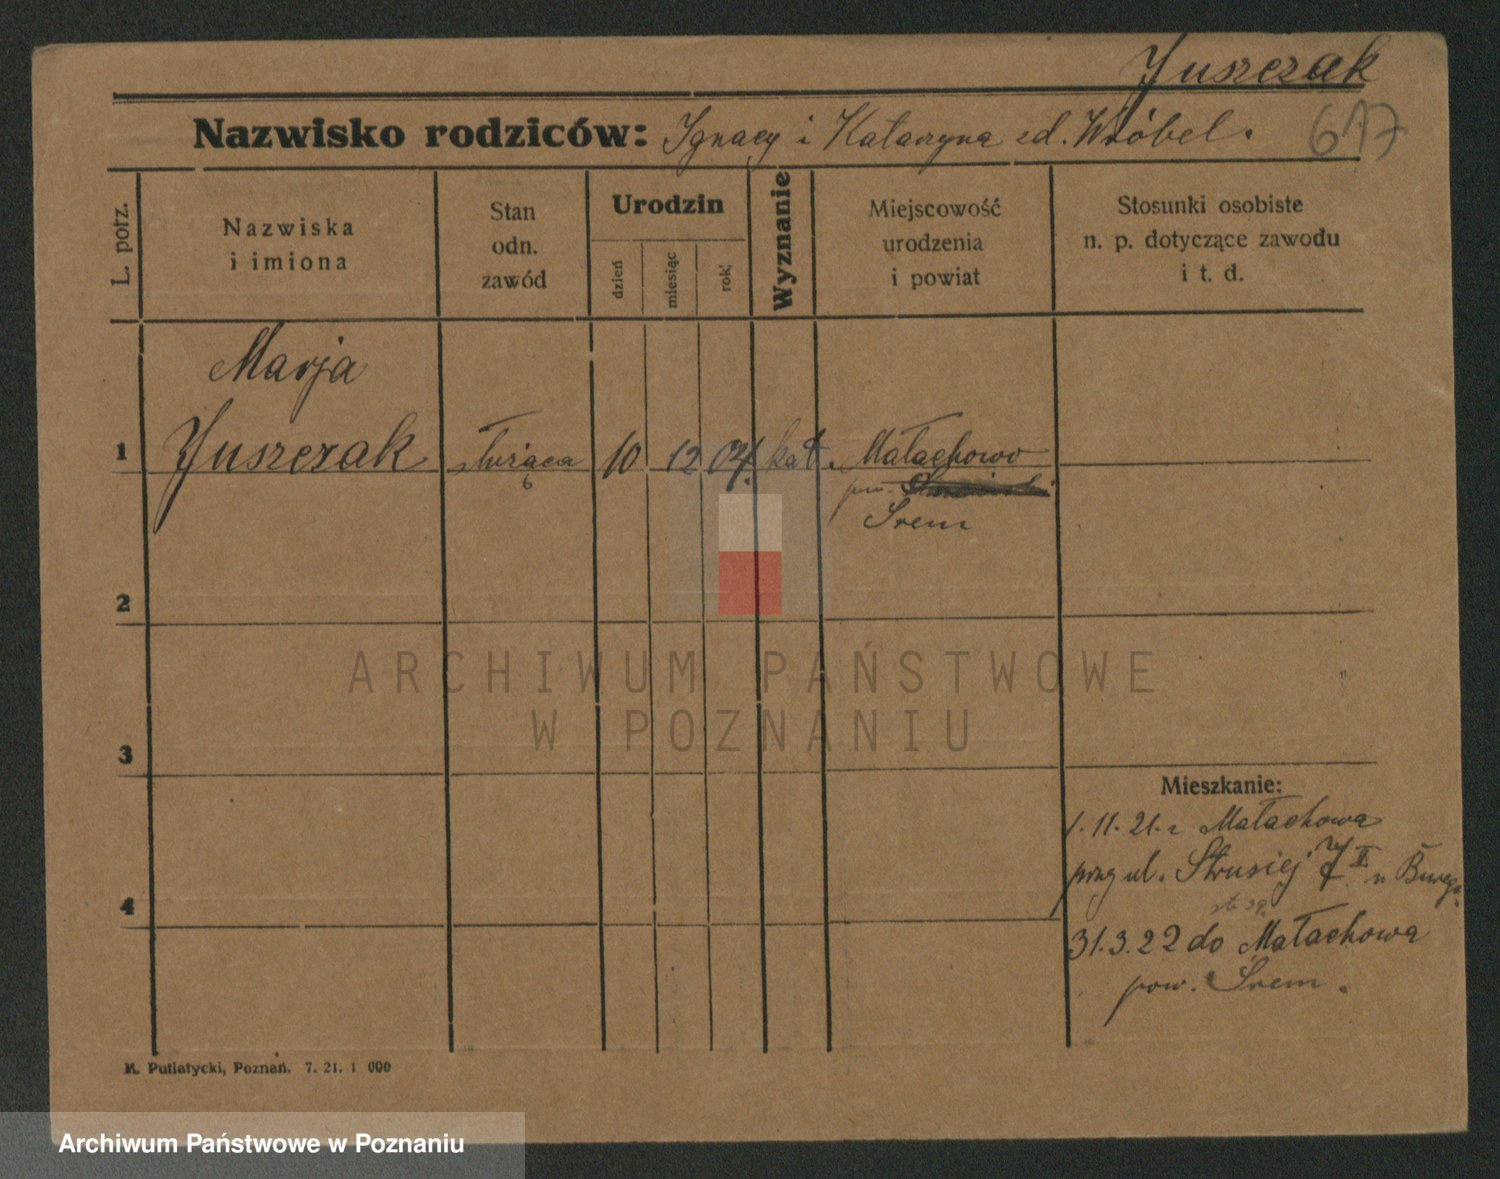 Juszczak
Nazwisko rodziców: Ignacy i Katarzyna zd. Wróbel.
617
L. porz.
Nazwiska
i imiona
Stan
odn.
zawód
Urodzin
dzień
miesiąc
rok
Wyznanie
Miejscowość
urodzenia
i powiat
Stosunki osobiste
n. p. dotyczące zawodu
i t. d.
Marja
1 Juszczak służąca 10 12 04. kat. Małachowo
pow.
Śrem
2
3
4
Mieszkanie:
1.11.21. z Małachowa
przy ul. Strusiej 7 II u
31.3.22 do Małachowa
pow. Śrem.
M. Putiatycki, Poznań. 7. 21. 1 000
ARCHIWUM PAŃSTWOWE
W POZNANIU
Archiwum Państwowe w Poznaniu